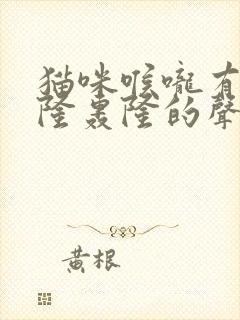 猫咪喉嚨有
隆轟隆的聲
黃根